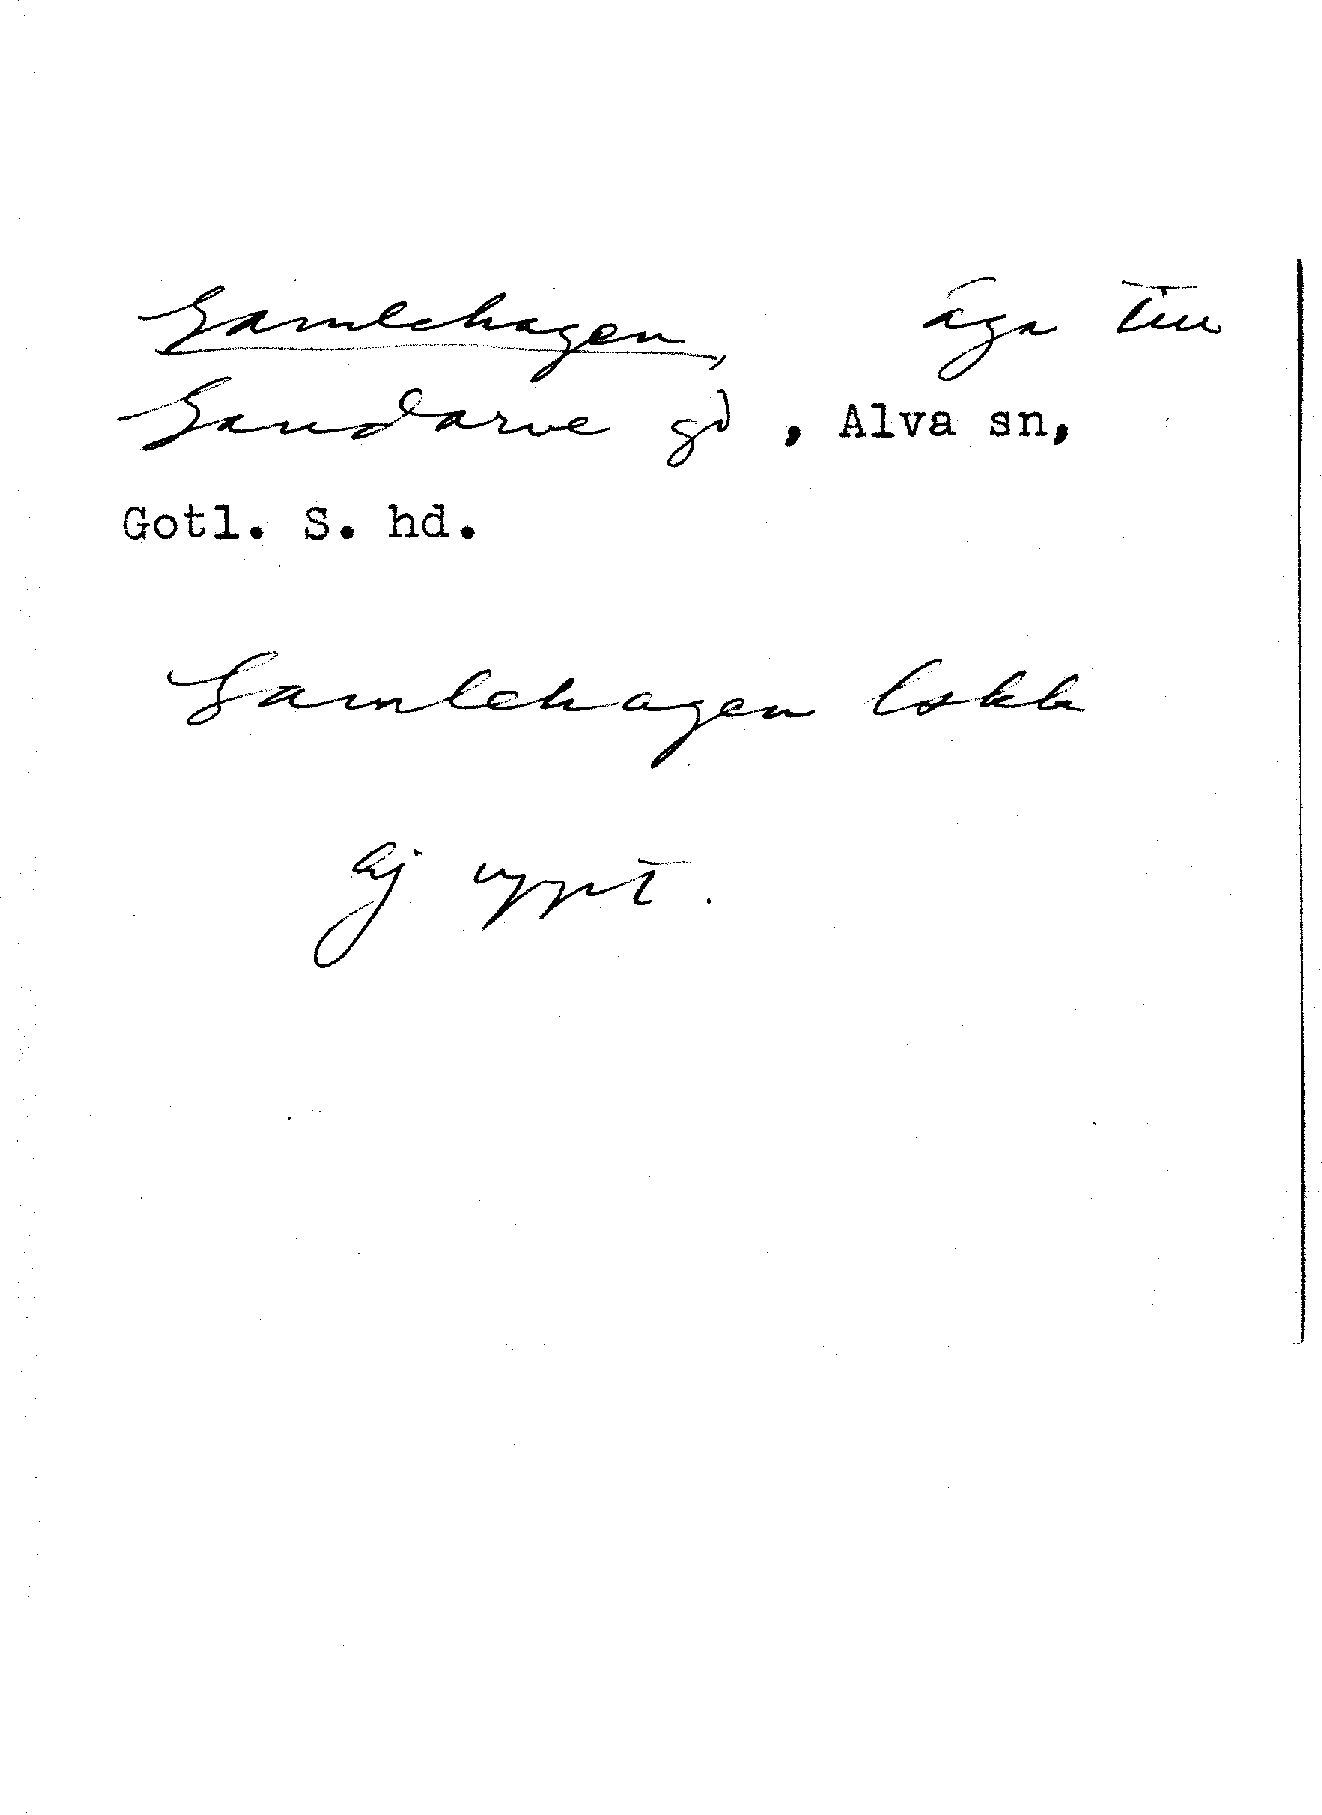 Gamlehagen, äga till
Gandarve gd, Alva sn,
Gotl. S. hd.
Gamlehagen Lskb
Ej uppt.